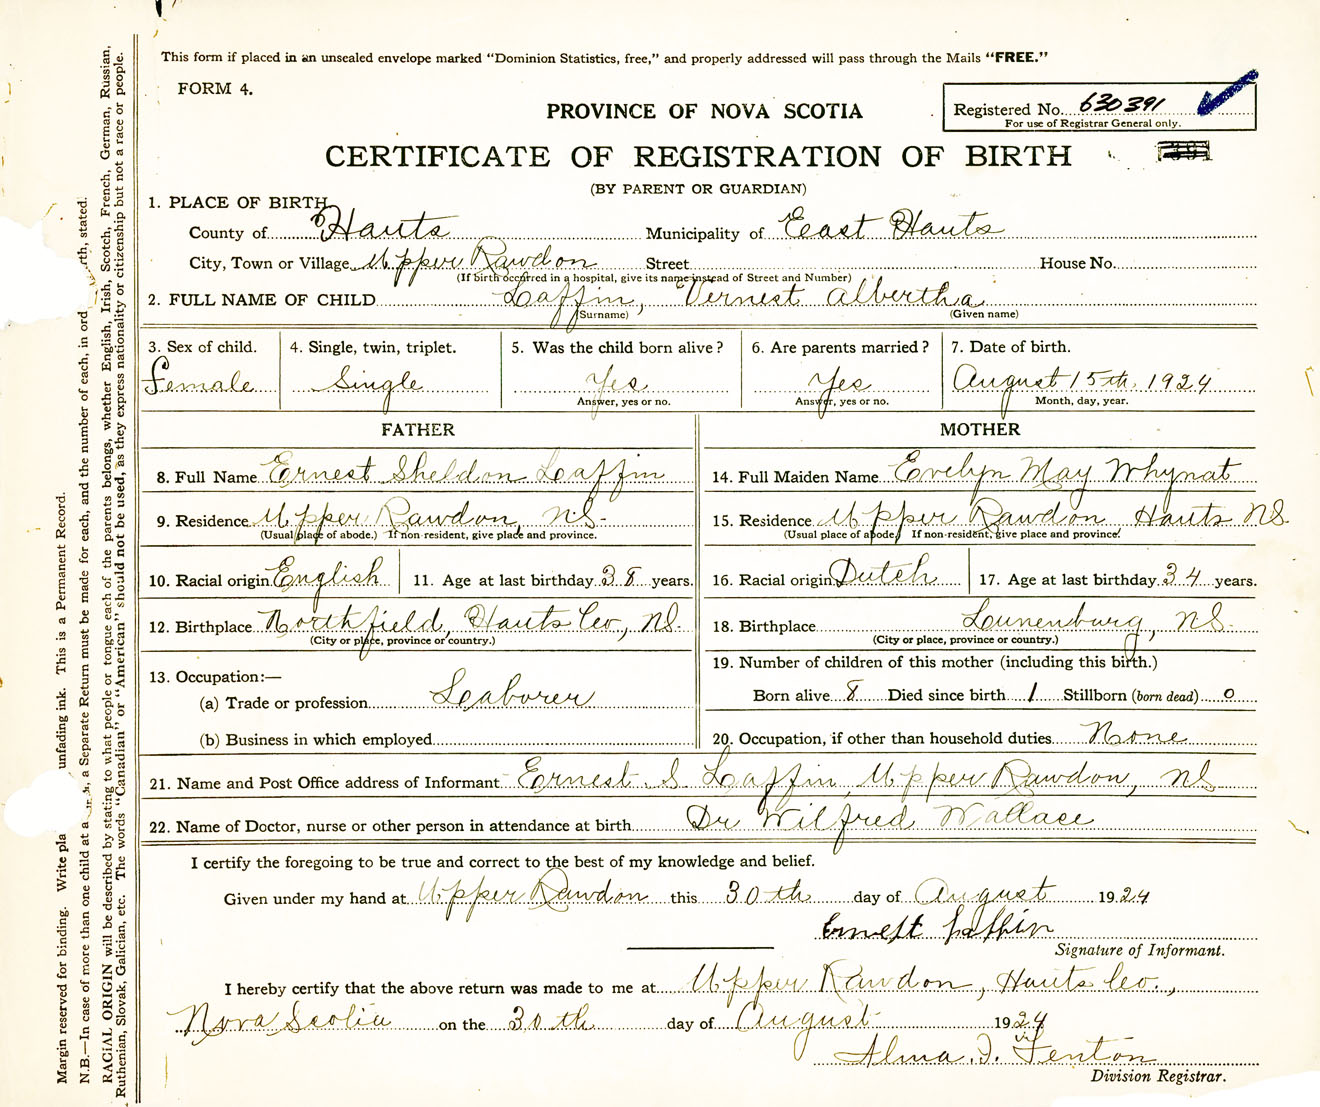 This form if placed in an unsealed envelope marked "Dominion Statistics, free," and properly addressed will pass through the Mails "FREE."
FORM 4.
Registered No. 630391
For use of Registrar General only.
PROVINCE OF NOVA SCOTIA
CERTIFICATE OF REGISTRATION OF BIRTH
(BY PARENT OR GUARDIAN)
1. PLACE OF BIRTH
County of Hants Municipality of East Hants
City, Town or Village Upper Rawdon Street House No.
(If birth occurred in a hospital, give its name instead of Street and Number)
2. FULL NAME OF CHILD Laffin, Vernest Albertha
(Surname) (Given name)
3. Sex of child. 4. Single, twin, triplet. 5. Was the child born alive? 6. Are parents married? 7. Date of birth.
Female Single Yes Yes August 15th, 1924
Answer, yes or no. Answer, yes or no. Month, day, year.
FATHER MOTHER
8. Full Name Ernest Sheldon Laffin 14. Full Maiden Name Evelyn May Whynat
9. Residence Upper Rawdon, N.S. 15. Residence Upper Rawdon Hants N.S.
(Usual place of abode.) If non-resident, give place and province. (Usual place of abode) If non-resident, give place and province.
10. Racial origin English 11. Age at last birthday 38 years. 16. Racial origin Dutch 17. Age at last birthday 34 years.
12. Birthplace Northfield, Hants Co., N.S. 18. Birthplace Lunenburg, N.S.
(City or place, province or country.) (City or place, province or country.)
13. Occupation:— 19. Number of children of this mother (including this birth.)
(a) Trade or profession Laborer Born alive 8 Died since birth 1 Stillborn (born dead) 0
(b) Business in which employed 20. Occupation, if other than household duties None
21. Name and Post Office address of Informant Ernest S Laffin, Upper Rawdon, N.S.
22. Name of Doctor, nurse or other person in attendance at birth Dr Wilfred Wallace
I certify the foregoing to be true and correct to the best of my knowledge and belief.
Given under my hand at Upper Rawdon this 30th day of August 1924
Ernest Laffin
Signature of Informant.
I hereby certify that the above return was made to me at Upper Rawdon, Hants Co.,
Nova Scotia on the 30th day of August 1924
Alma J. Fenton
Division Registrar.
Margin reserved for binding. Write unfading ink. This is a Permanent Record.
N.B.—In case of more than one child at a a Separate Return must be made for each, and the number of each, in stated.
RACIAL ORIGIN will be described by stating to what people or tongue each of the parents belongs, whether English, Irish, Scotch, French, German, Russian,
Ruthenian, Slovak, Galician, etc. The words "Canadian" or "American" should not be used, as they express nationality or citizenship but not a race or people.